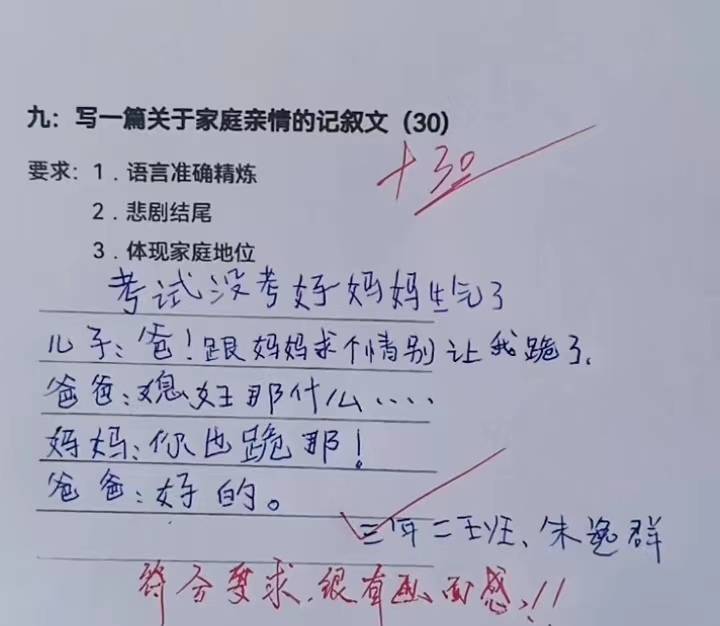 九：写一篇关于家庭亲情的记叙文（30）
+30
要求：1．语言准确精炼
2．悲剧结尾
3．体现家庭地位
考试没考好妈妈生气了
儿子：爸！跟妈妈求个情别让我跪了.
爸爸：媳妇那什么····
妈妈：你也跪那！
爸爸：好的。
三年二班、朱逸群
符合要求.很有画面感,!!